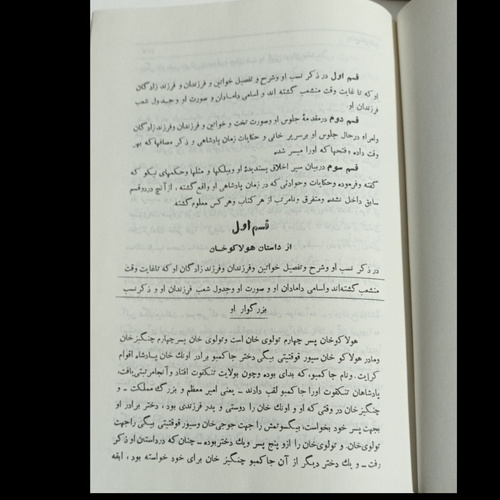 قسم اول در ذکر نسب او وشرح و تفصیل خواتین و فرزندان و فرزند زادگان
او که تا غایت وقت منشعب گشته اند و اسامی دامادان و صورت او و جدول شعب
فرزندان او
قسم دوم در مقدمهٔ جلوس او وصورت تخت و خواتین و فرزندان وفرزند زادگان
وامراء درحال جلوس او برسریر خانی و حکایات زمان پادشاهی و ذکر مصافها که بهر
وقت داده وفتحها که اورا میسر شده.
قسم سوم دربیان سیر اخلاق پسندیدهٔ او وبیلکها و مثلها وحکمهای نیکو که
گفته وفرموده و حکایات وحوادثی که در زمان پادشاهی او واقع گشته، از آنچ دردوقسم
سابق داخل نشده ومتفرق ونامرتب از هر کتاب وهر کس معلوم گشته.
قسم اول
از داستان هولاکوخان
در ذکر نسب او وشرح وتفصیل خواتین وفرزندان وفرزند زادگان او که تاغایت وقت
منشعب گشته‌اند واسامی دامادان او و صورت او وجدول شعب فرزندان او و ذکر نسب
بزرگوار او
هولاکوخان پسر چهارم تولوی خان است وتولوی خان پسرچهارم چنگیز خان
ومادر هولاکو خان سیور قوقتیتی بیگی دختر جاکمبو برادر اونك خان پادشاه اقوام
کرایت. ونام جاکمبو، که بدای بوده وچون بولایت تنکقوت افتاد وآنجامرتبتی‌یافت،
پادشاهان تنکقوت اورا جاکمبو لقب دادند ـ یعنی امیر معظم و بزرگ مملکت ـ و
چنگیز خان در وقتی که او و اونك خان را دوستی و پدر فرزندی بود، دختر برادر او
بجهت پسر خود بخواست، بیکتوتمش را جهت جوجی‌خان وسیور قوقتیتی بیگی راجهت
تولوی‌خان. و تولوی‌خان را ازو پنج پسر ویك دختر بوده ـ چنان که درداستان او ذکر
رفت ـ و یك دختر دیگر از آن جاکمبو چنگیز خان برای خود خواسته بود، ابقه